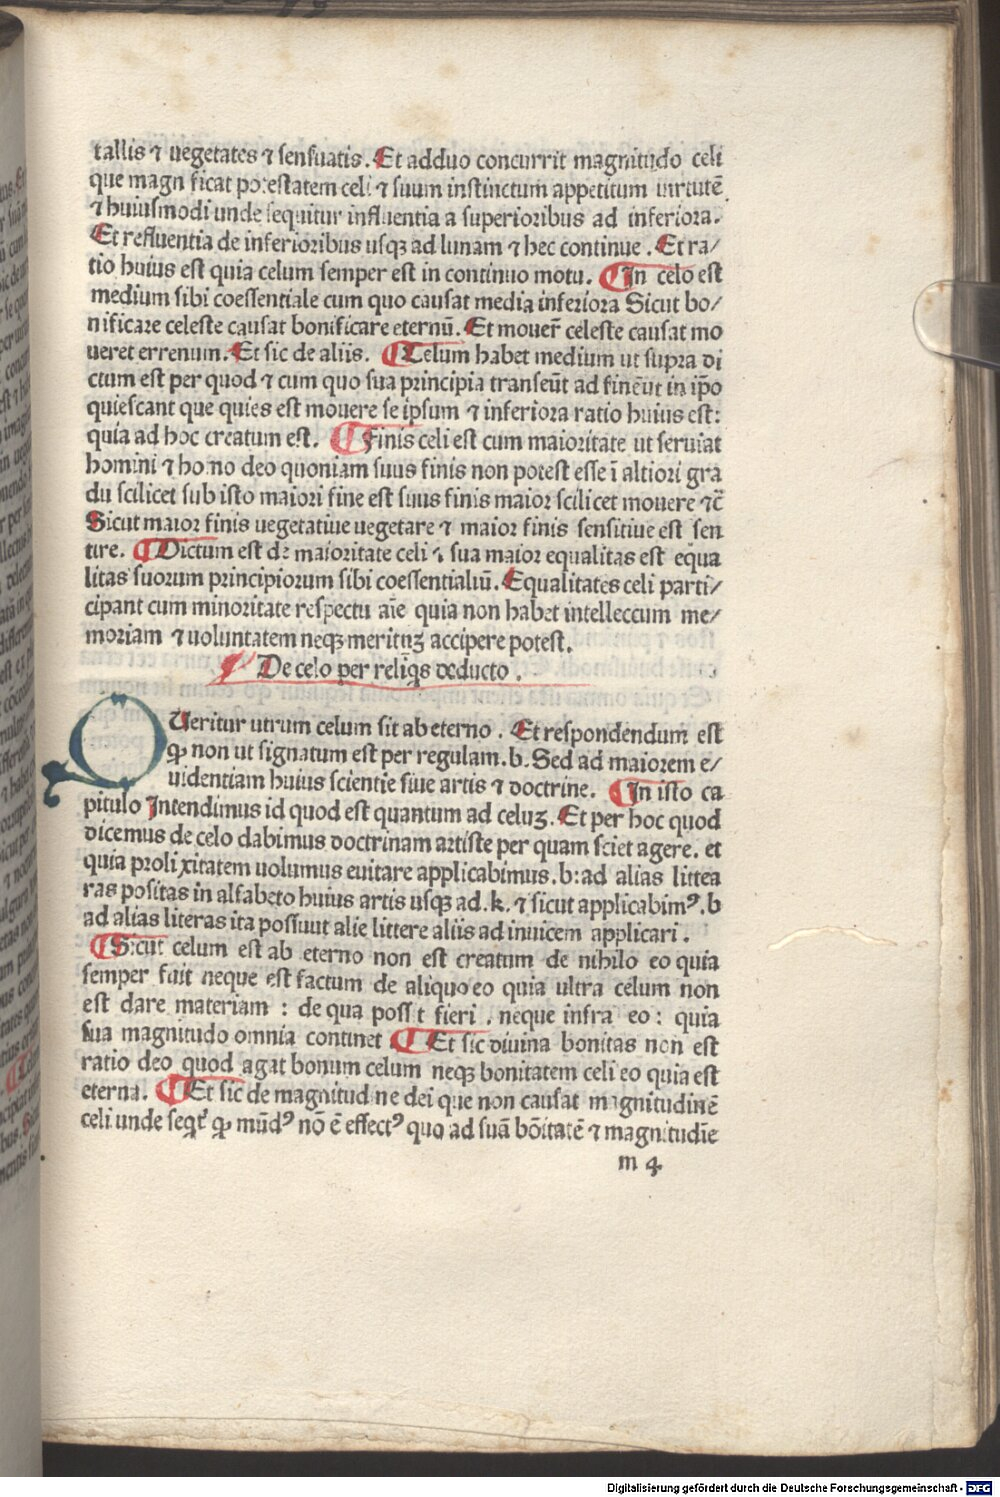 tallis ⁊ uegetates ⁊ sensuatis. Et adduo concurrit magnitudo celi
que magn ficat potestatem celi ⁊ suum instinctum appetitum uirtutē
⁊ huiusmodi unde sequitur influentia a superioribus ad inferiora.
Et refluentia de inferioribus usqꝫ ad lunam ⁊ hec continue. Et ra/
tio huius est quia celum semper est in continuo motu. ¶ In celo est
medium sibi coessentiale cum quo causat media inferiora Sicut bo/
nificare celeste causat bonificare eternū. Et mouer̄ celeste causat mo
ueret errenum. Et sic de aliis. ¶ Celum habet medium ut supra di
ctum est per quod ⁊ cum quo sua principia transeūt ad finēut in ip̄o
quiescant que quies est mouere se ipsum ⁊ inferiora ratio huius est:
quia ad hoc creatum est. ¶ Finis celi est cum maioritate ut seruiat
homini ⁊ homo deo quoniam suus finis non potest esse ī altiori gra
du scilicet sub isto maiori fine est suus finis maior scilicet mouere ⁊c̄
Sicut maior finis uegetatiue uegetare ⁊ maior finis sensitiue est sen
tire. ¶ Dictum est de maioritate celi ⁊ sua maior equalitas est equa
litas suorum principiorum sibi coessentialiū. Equalitates celi parti/
cipant cum minoritate respectu aīe quia non habet intelleccum me/
moriam ⁊ uoluntatem neqꝫ merituꝫ accipere potest.
¶ De celo per reliq̄s deducto.
QUeritur utrum celum sit ab eterno. Et respondendum est
ꝙ non ut signatum est per regulam. b. Sed ad maiorem e/
uidentiam huius scientie siue artis ⁊ doctrine. ¶ In isto ca
pitulo Intendimus id quod est quantum ad celuꝫ. Et per hoc quod
dicemus de celo dabimus doctrinam artiste per quam sciet agere. et
quia prolixitatem uolumus euitare applicabimus. b: ad alias littea
ras positas in alfabeto huius artis usqꝫ ad. k. ⁊ sicut applicabimꝰ. b
ad alias literas ita possuut alie littere aliis ad inuicem applicari.
¶ Sicut celum est ab eterno non est creatum de nihilo eo quia
semper fuit neque est factum de aliquo eo quia ultra celum non
est dare materiam : de qua poss t fieri . neque infra eo : quia
sua magnitudo omnia continet ¶ Et sic diuina bonitas non est
ratio deo quod agat bonum celum neqꝫ bonitatem celi eo quia est
eterna. ¶ Et sic de magnitud ne dei que non causat magnitudinē
celi unde seqt᷑ ꝙ mūdꝰ nō ē effectꝰ quo ad suā bōitatē ⁊ magnitudīe
m 4
Digitalisierung gefördert durch die Deutsche Forschungsgemeinschaft - DFG